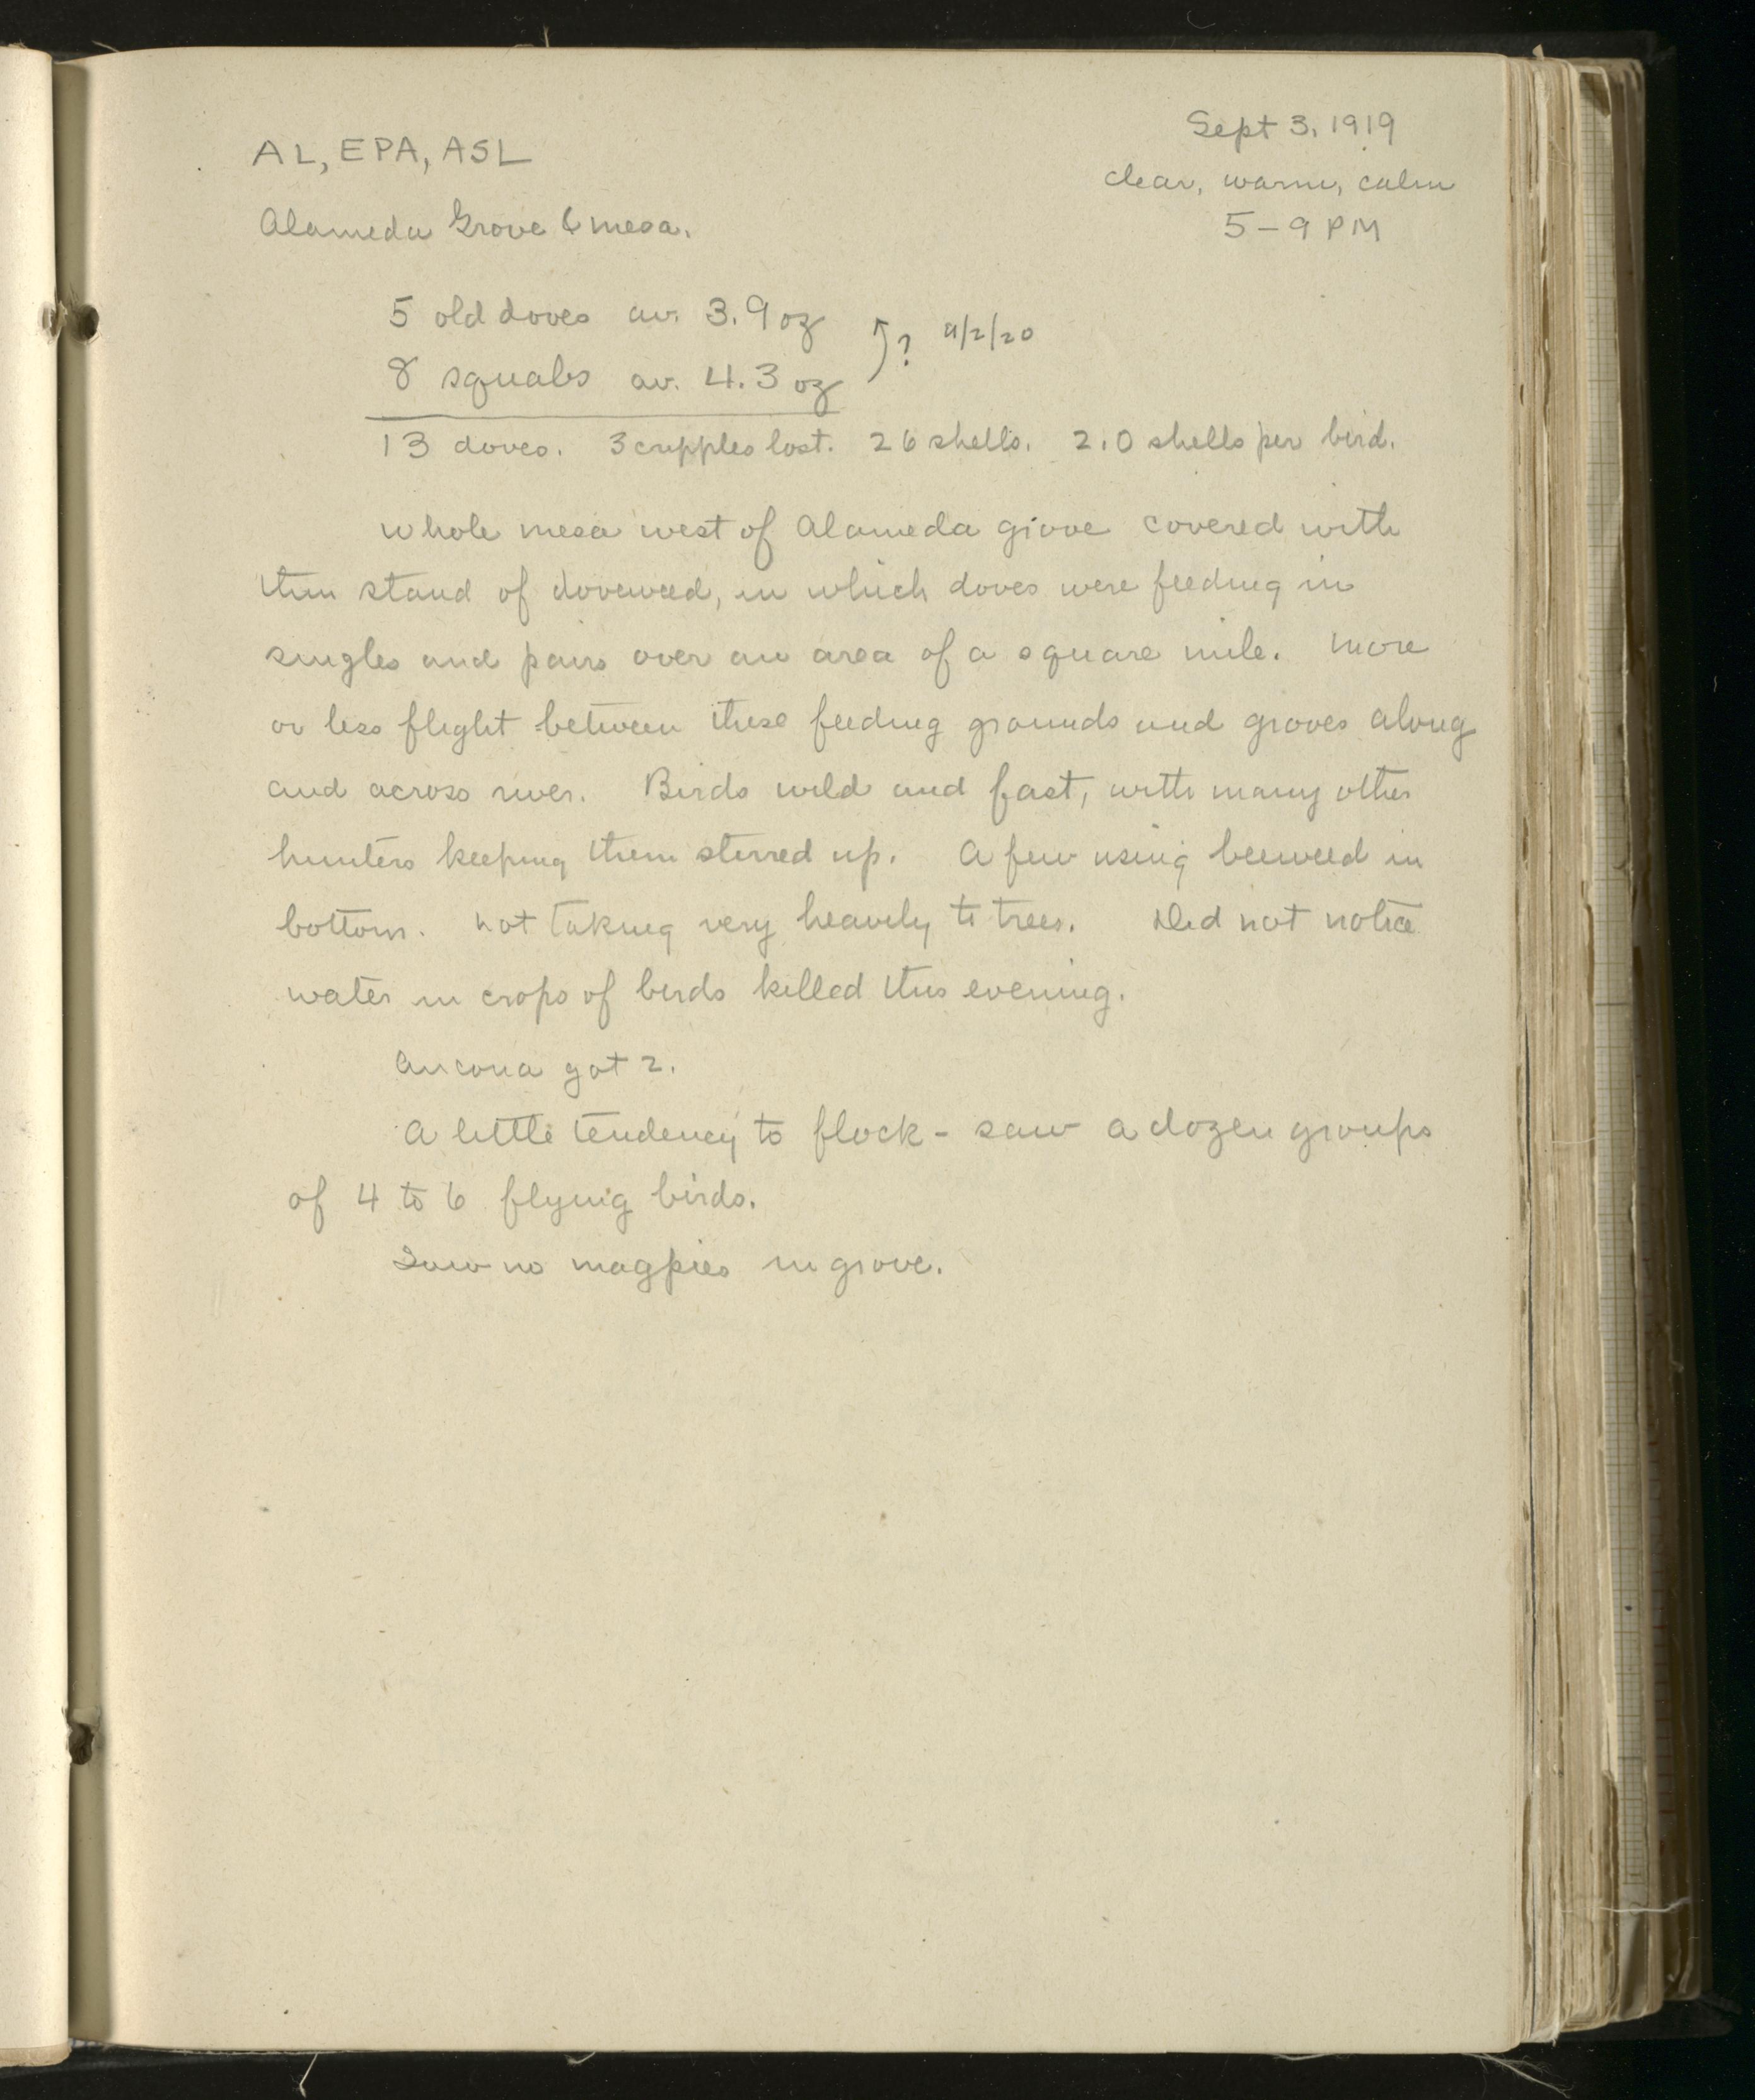 Sept 3, 1919
AL, EPA, ASL
clear, warm, calm
Alameda Grove & mesa.
5-9 PM
5 old doves av. 3.9 oz
8 squabs av. 4.3 oz
? 9/2/20
13 doves. 3 cripples lost. 26 shells. 2.0 shells per bird.
Whole mesa west of Alameda grove covered with
thin stand of doveweed, in which doves were feeding in
singles and pairs over an area of a square mile. More
or less flight between these feeding grounds and groves along
and across river. Birds wild and fast, with many other
hunters keeping them stirred up. A few using beeweed in
bottom. Not taking very heavily to trees. Did not notice
water in crops of birds killed this evening.
Ancona got 2.
A little tendency to flock - saw a dozen groups
of 4 to 6 flying birds.
Saw no magpies in grove.